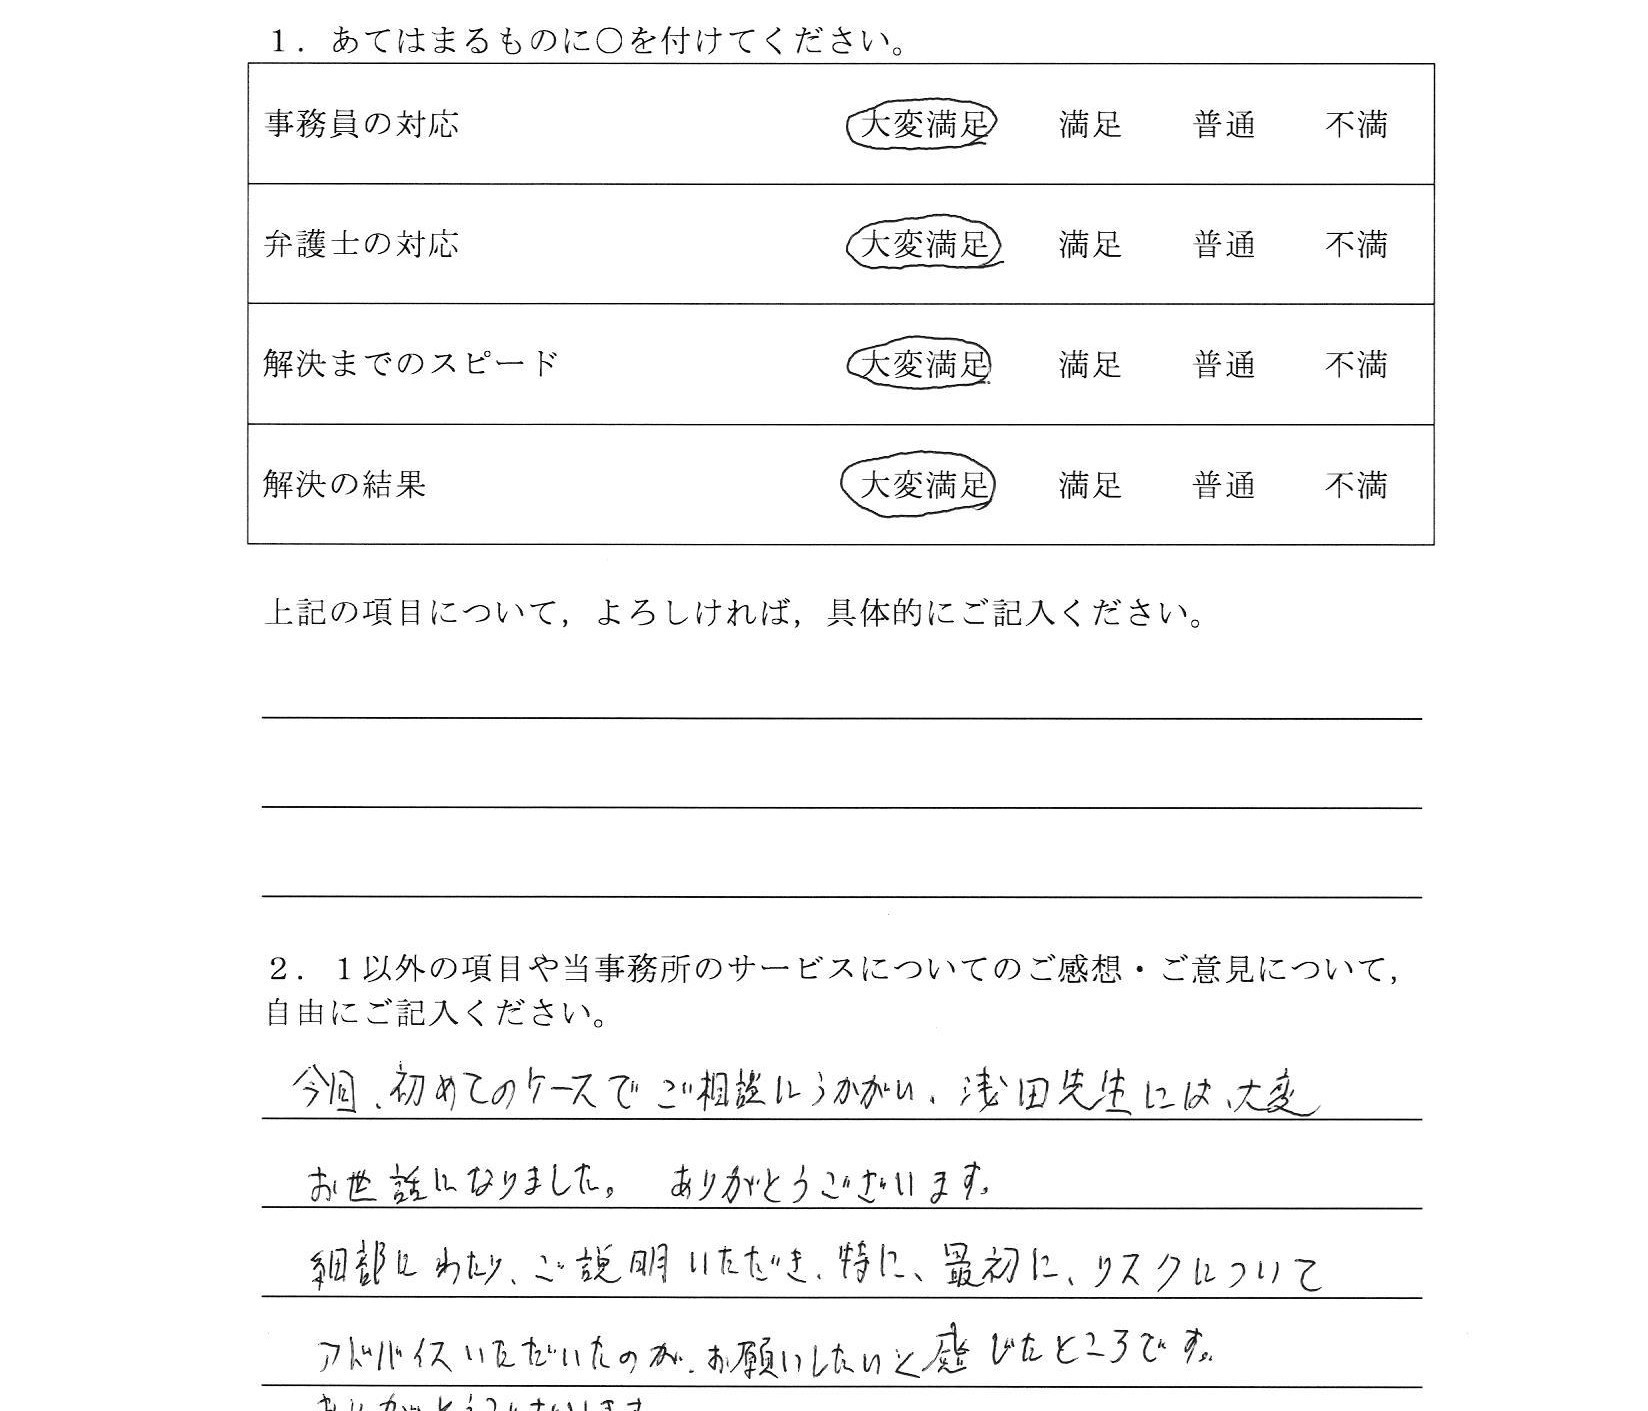 １．あてはまるものに○を付けてください。
事務員の対応　大変満足　満足　普通　不満
弁護士の対応　大変満足　満足　普通　不満
解決までのスピード　大変満足　満足　普通　不満
解決の結果　大変満足　満足　普通　不満
上記の項目について，よろしければ，具体的にご記入ください。
２．１以外の項目や当事務所のサービスについてのご感想・ご意見について，
自由にご記入ください。
今回、初めてのケースでご相談にうかがい、浅田先生には、大変
お世話になりました。　ありがとうございます。
細部にわたり、ご説明いただき、特に、最初に、リスクについて
アドバイスいただいたのが、お願いしたいと感じたところです。
ありがとうございます